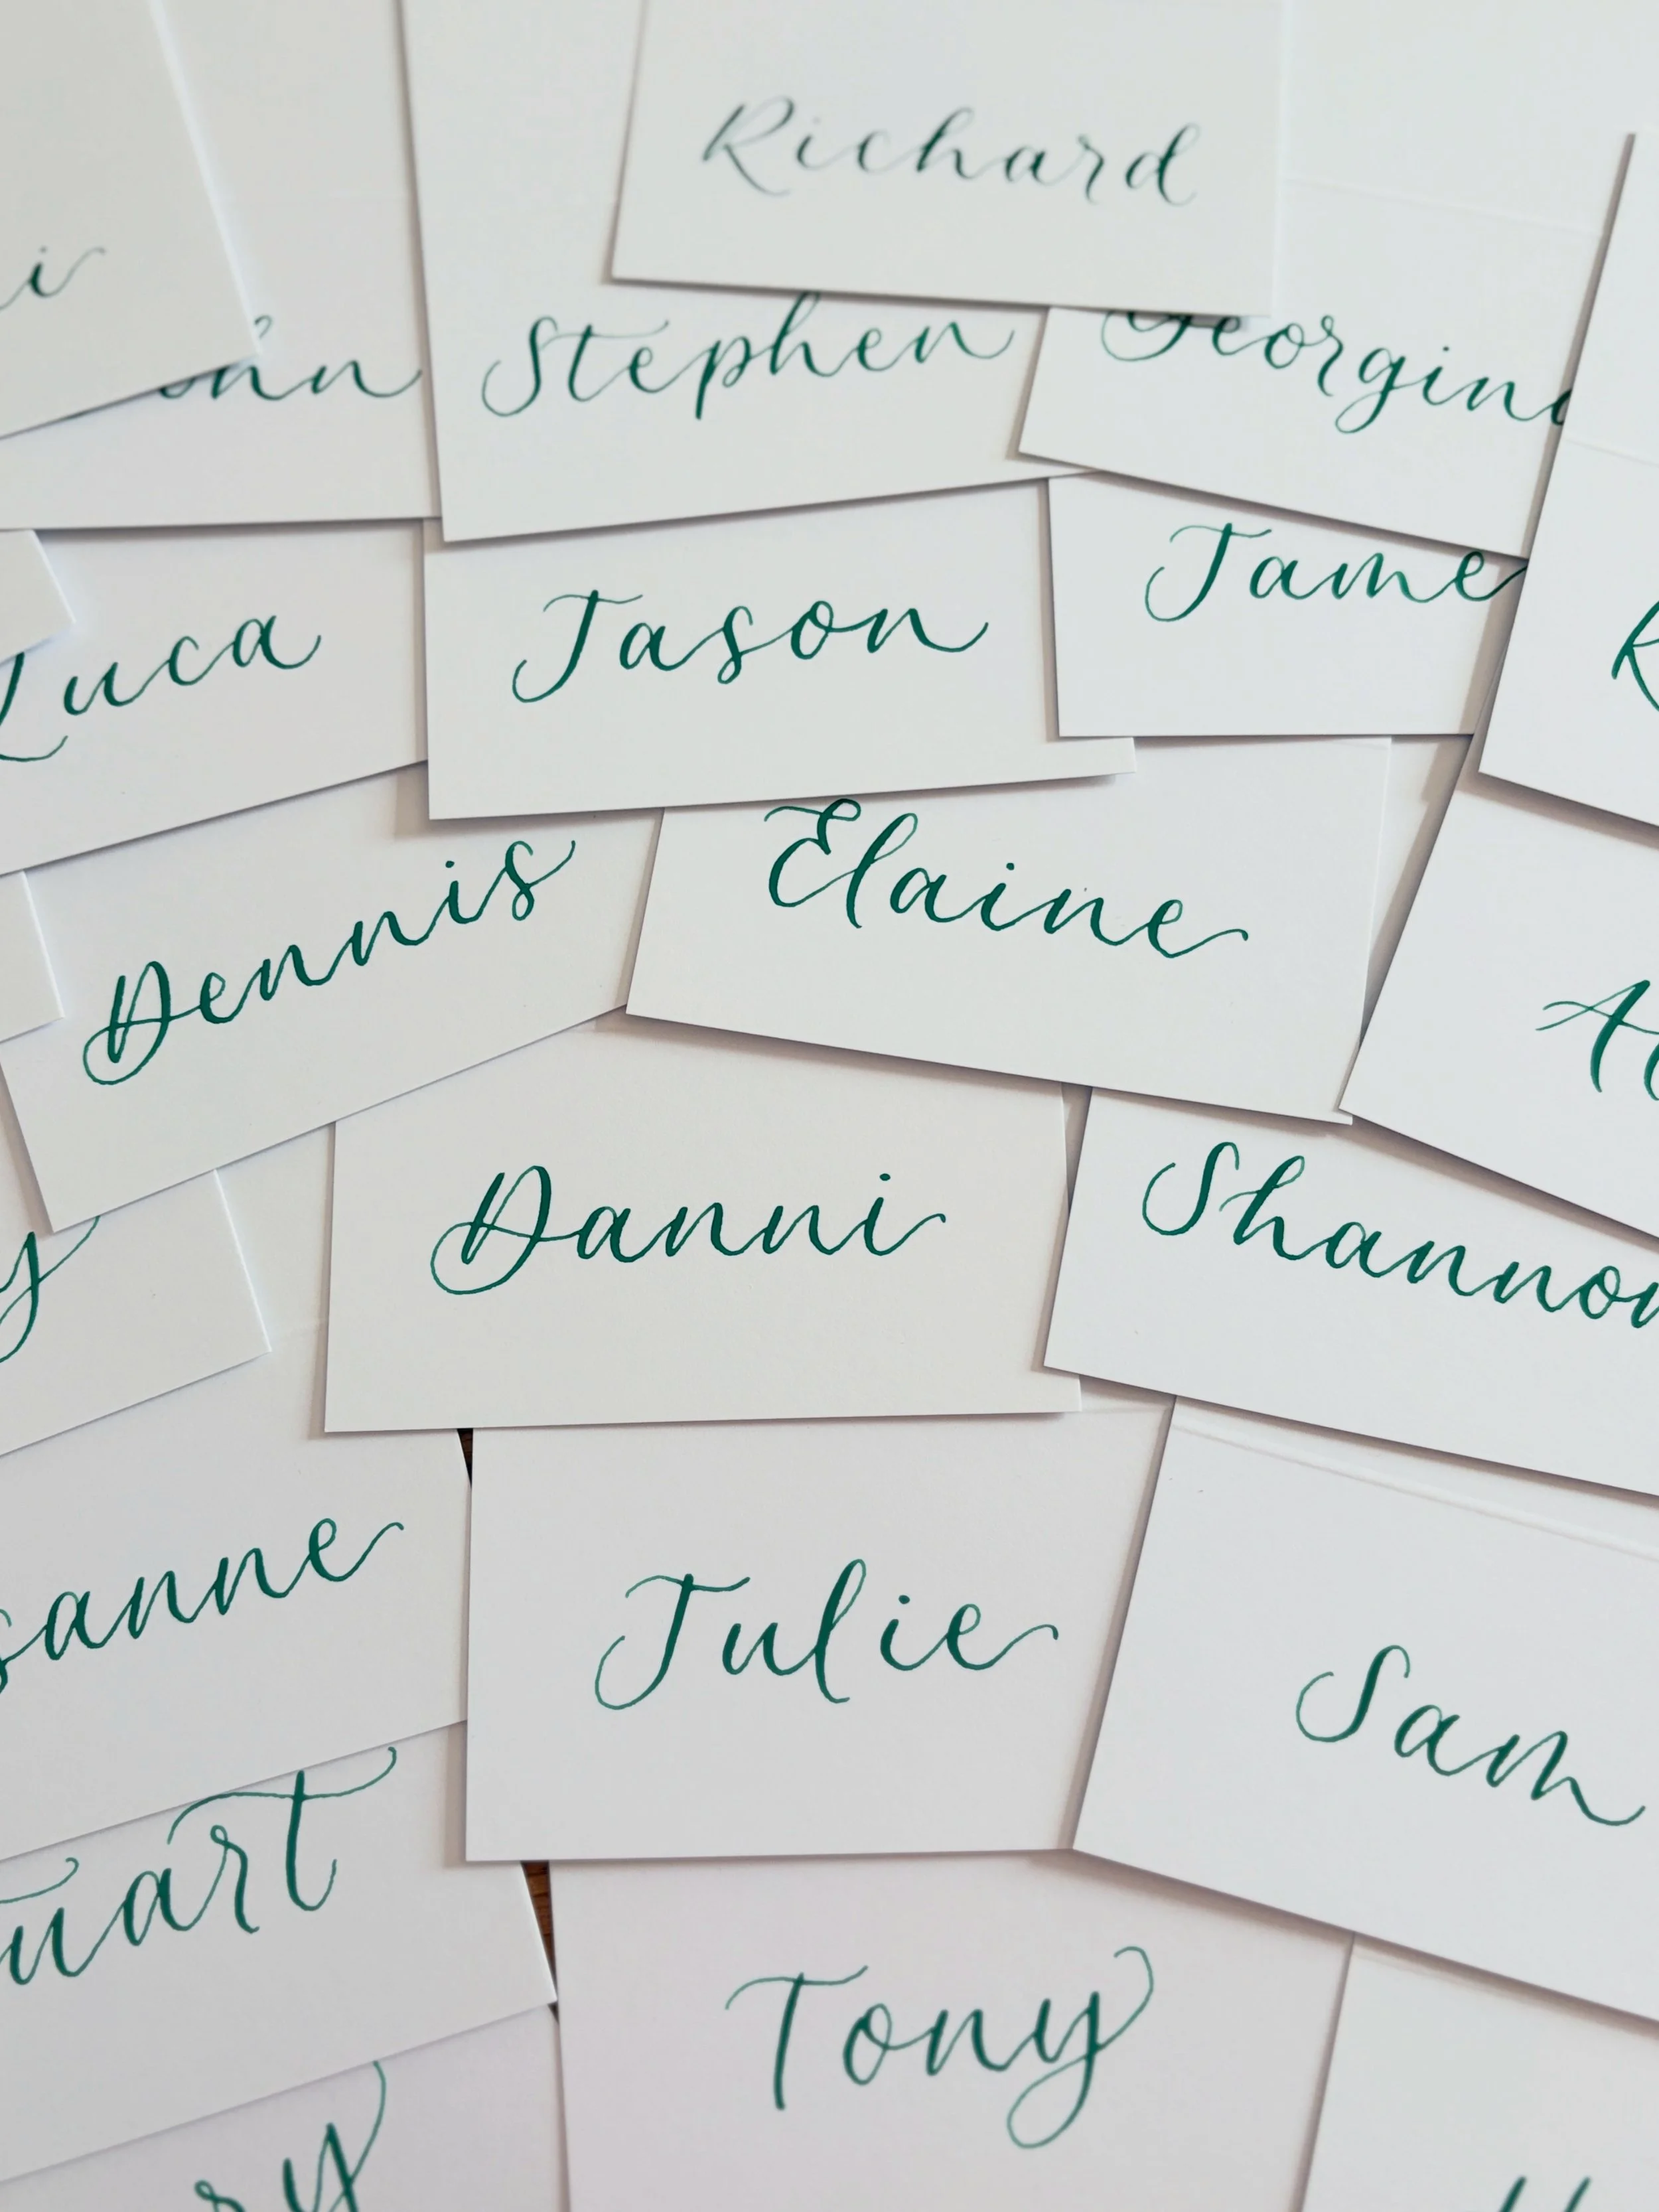 Richard
Stephen
Georgina
Jame
Luca
Jason
Elaine
Dennis
Danni
Shannon
sanne
Julie
Sam
uart
Tony